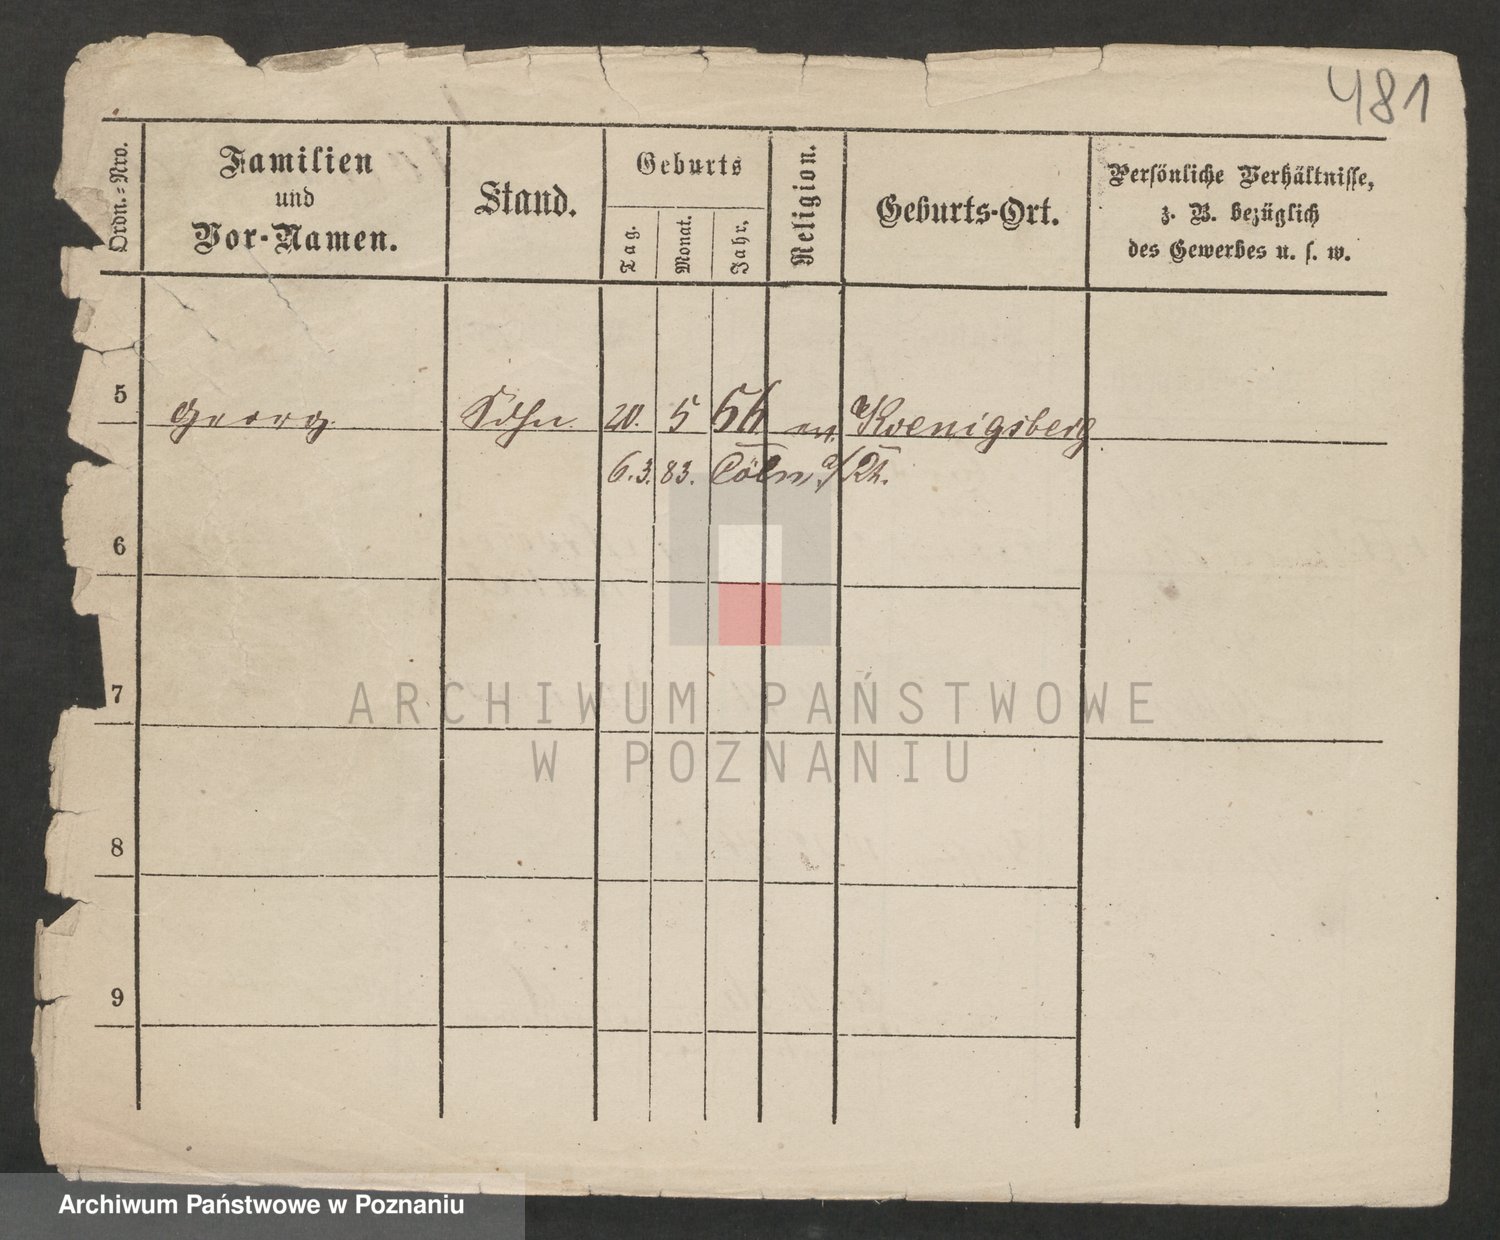 481
Ordn.-Nro.
Familien
und
Vor-Namen.
Stand.
Geburts
Tag.
Monat.
Jahr.
Religion.
Geburts-Ort.
Persönliche Verhältnisse,
z. B. bezüglich
des Gewerbes u. s. w.
5 Georg Sohn 20. 5 66 ev. Koenigsberg
6. 3. 83. Cöln a/Rh.
6
7
8
9
ARCHIWUM PAŃSTWOWE
W POZNANIU
Archiwum Państwowe w Poznaniu